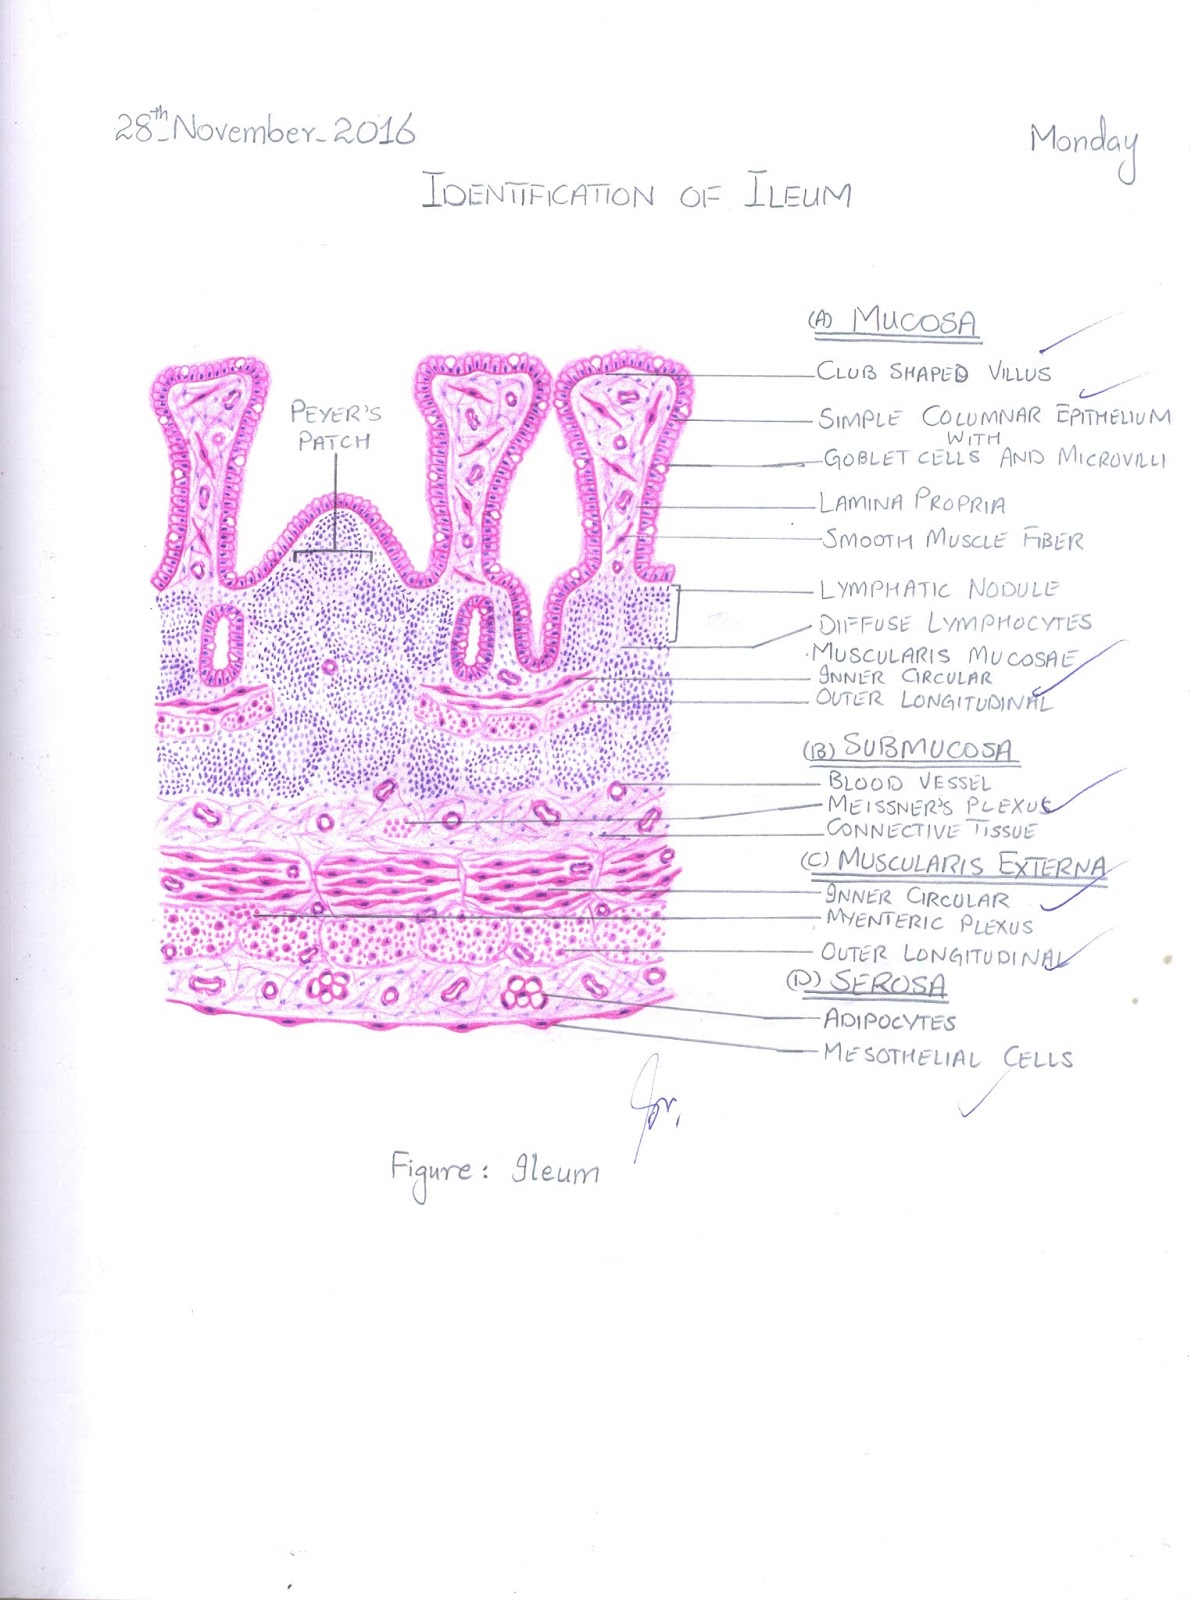 28th November-2016
Monday
IDENTIFICATION OF ILEUM
(A) MUCOSA
CLUB SHAPED VILLUS
PEYER'S
PATCH
SIMPLE COLUMNAR EPITHELIUM
WITH
GOBLET CELLS AND MICROVILLI
LAMINA PROPRIA
SMOOTH MUSCLE FIBER
LYMPHATIC NODULE
DIFFUSE LYMPHOCYTES
MUSCULARIS MUCOSAE
INNER CIRCULAR
OUTER LONGITUDINAL
(B) SUBMUCOSA
BLOOD VESSEL
MEISSNER'S PLEXUS
CONNECTIVE TISSUE
(C) MUSCULARIS EXTERNA
INNER CIRCULAR
MYENTERIC PLEXUS
OUTER LONGITUDINAL
(D) SEROSA
ADIPOCYTES
MESOTHELIAL CELLS
Figure: Ileum